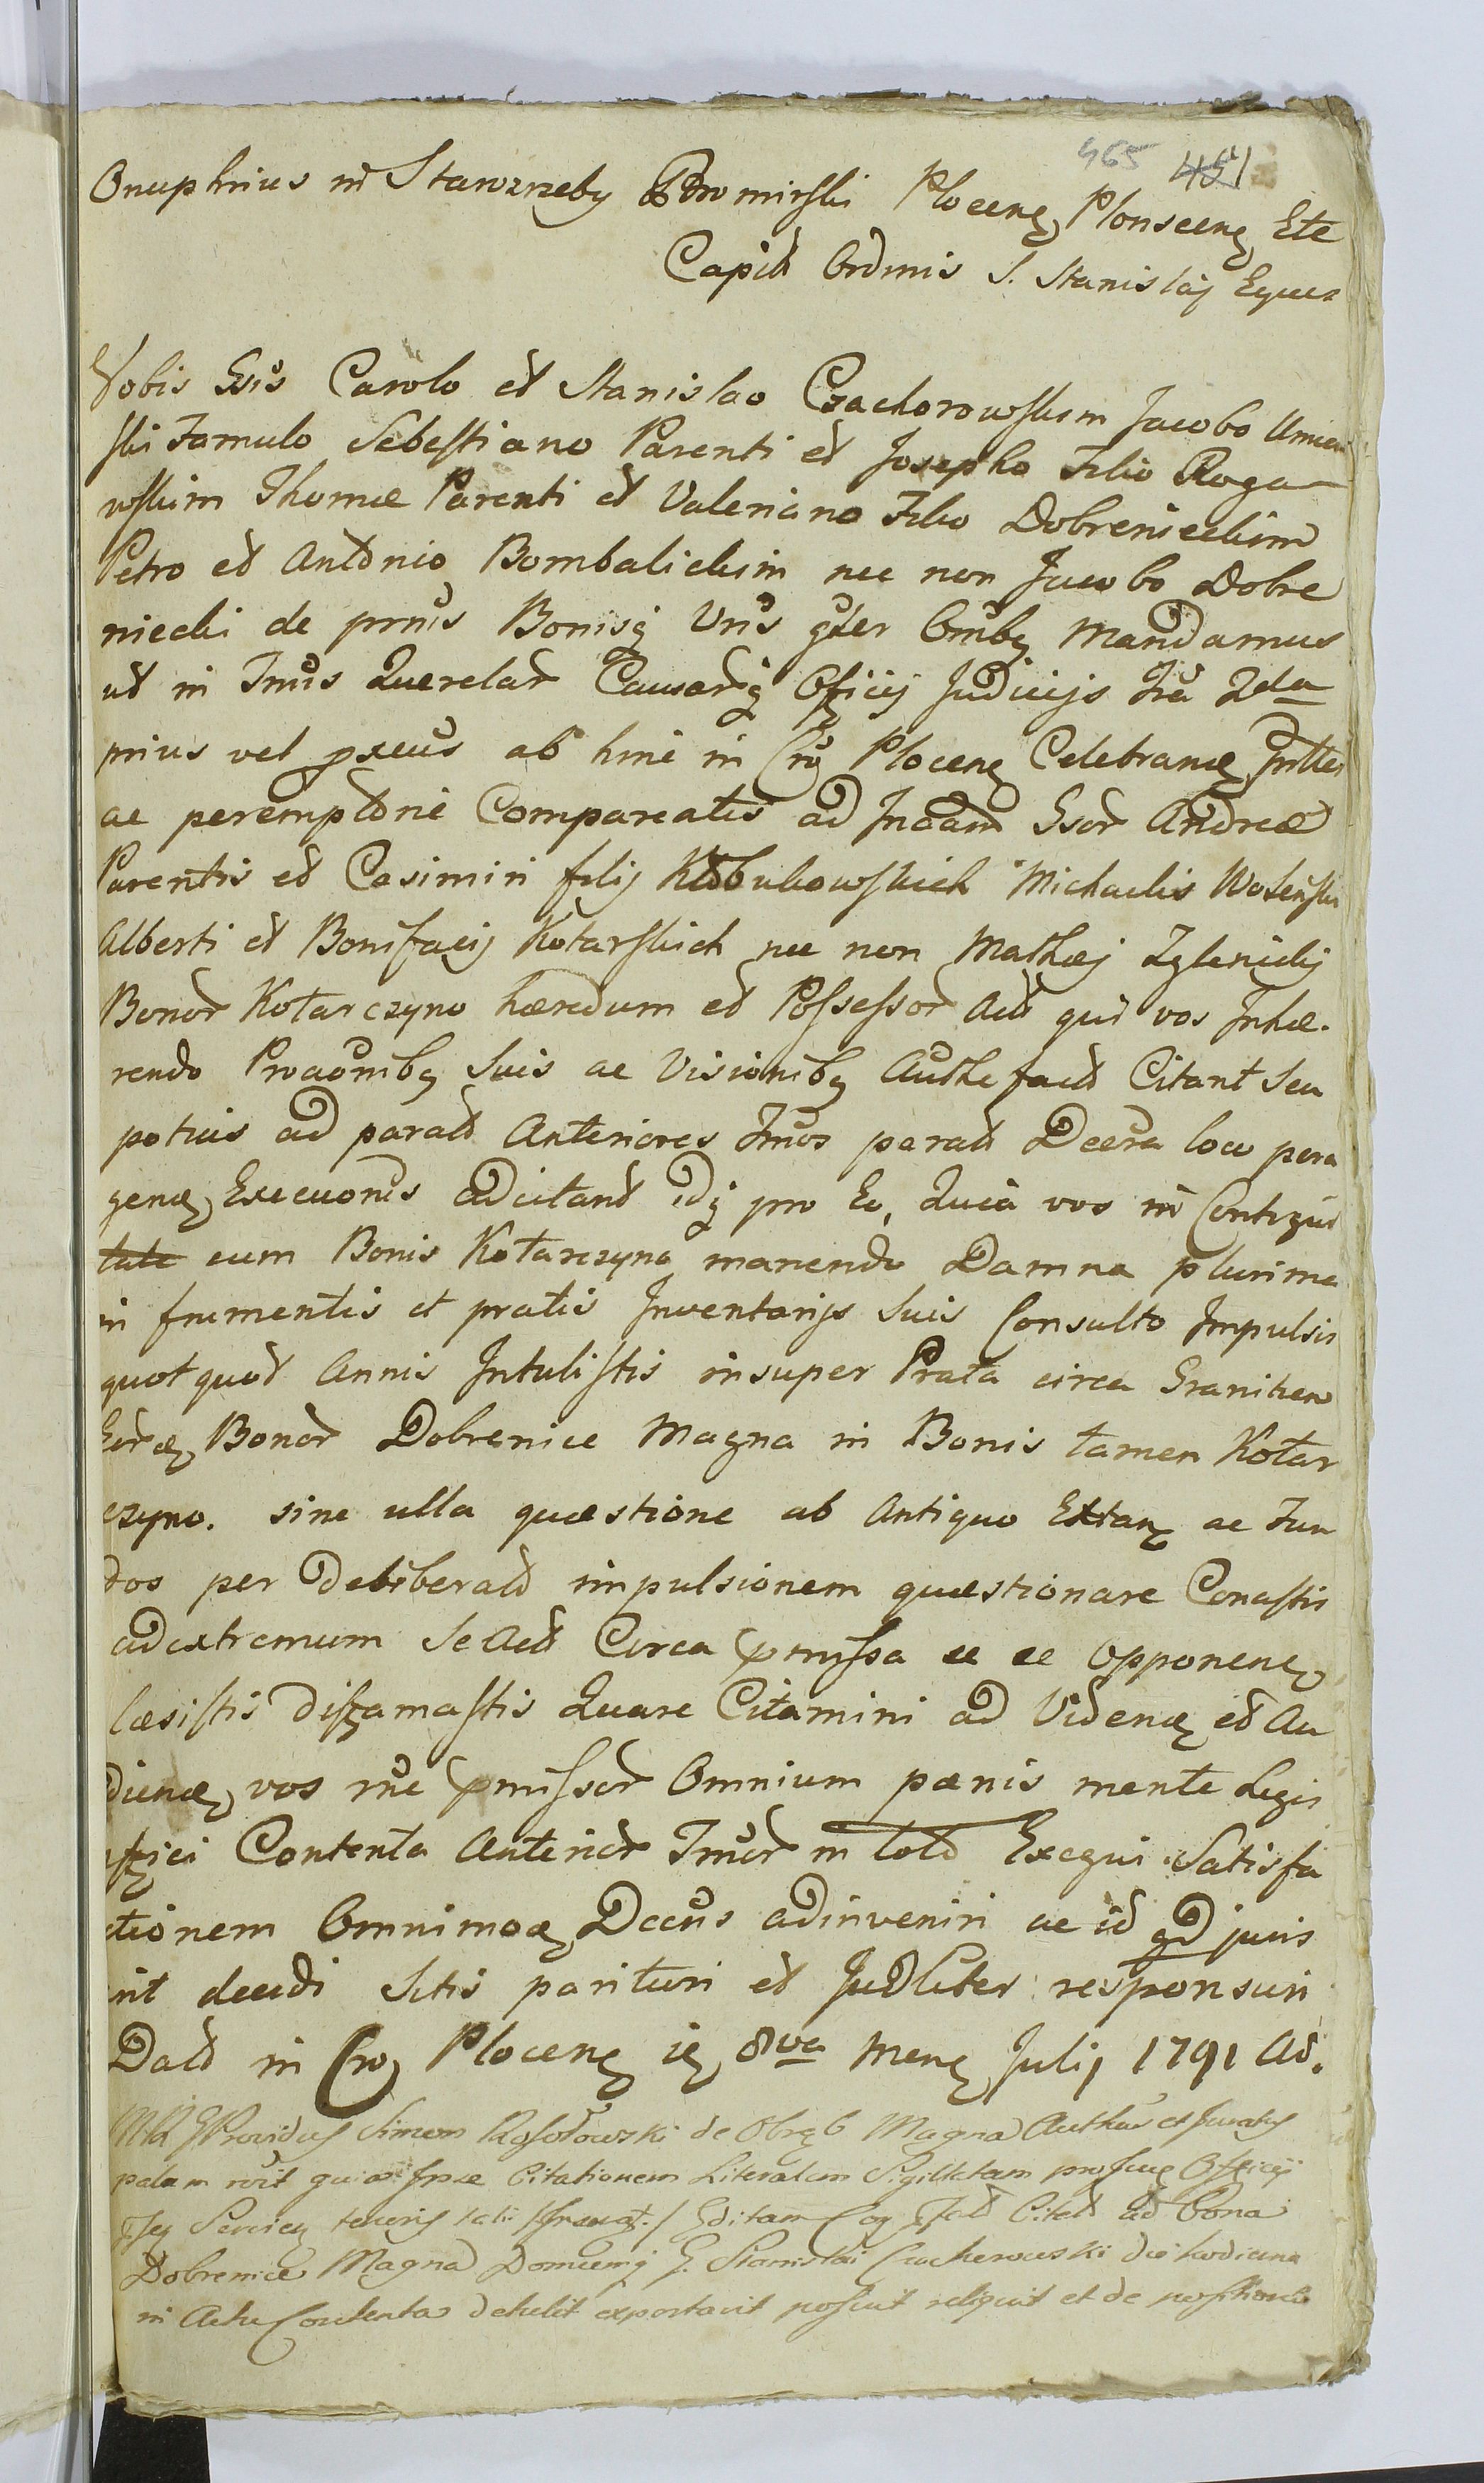 465 451
Onuphrius in Starozrzeby Bromirski Plocen Plonscen Etc
Capit Ordinis S. Stanislai Eques
Vobis Gsis Carolo et Stanislao Czachorowskim Jacobo
ski Famulo Sebestiano Parenti et Josepho Filio Roga
wskim Thomæ Parenti et Valeriano Filio Dobrenieckim
Petro et Antonio Bombalickim nec non Jacobo Dobre
niecki de pmis Bonisq Vris gnler Omibq Mandamus
ut in Tmis Querelar Causarq Officij Judicijs Fria 2da
prius vel pxeus ab hinc in Cro Plocen Celebran
ac peremptorie Compareatis ad Incam Gsor Andreæ
Parentis et Casimiri filij Kłobukowskich Michaelis
Alberti et Bonifacij Kotarskich nec non Mathæj Zglenickij
Bonor Kotarczyno hæredum et Possessor Act qui vos Inhæ-
rendo suis ac Visionibq Citant seu
potius ad parat Anteriores Tmos parat Decra loco pera
gen Execuonis adcitant idq pro Eo, Quia vos in Contigui
tate cum Bonis Kotarczyno manendo Damna plurima
in frumentis et pratis Inventarijs suis Consulto Impulsis
quot quot Annis Intulistis insuper Prata circa Granitien
Bonor Dobrenice Magna in Bonis tamen Kotar
czyno. sine ulla quæstione ab Antiquo Extan ac Fun
dos per deliberat impulsionem quæstionare Conastis
ad extremum se Act Circa pmissa ee Opponen
læsistis diffamastis Quare Citamini ad Viden et Au
dien vos rne pmissor Omnium pænis mente Legis
affici Contenta Anterior Tmor in toto Exequi Satisfa
ctionem Omnimod Decus adinveniri ac id qd juris
erit decidi sitis parituri et Judliter responsuri
Dat in Cro Plocen ie 8va Men Julij 1791 Ao.
Providus Simon Rosołowski de Obręb Magna et Juratus
palam quia Citationem Literalem Sigillatam Officij
Editam Citat ad Bona
Dobrenice Magna Domumq G. Stanislai Czachorowski die hodierna
in Actu Contenta detulit exportavit posuit reliquit et de positione